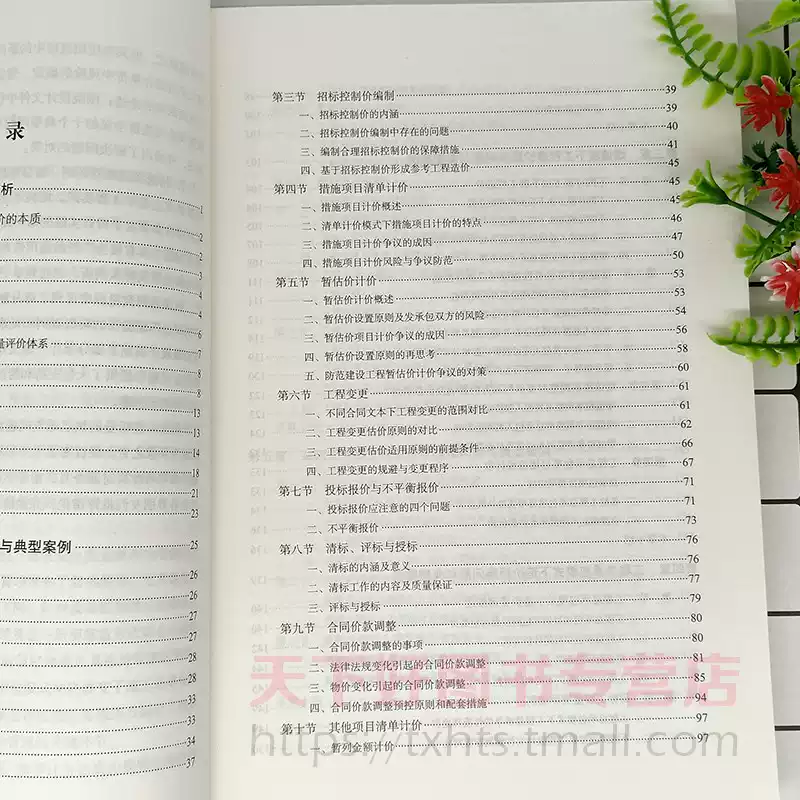 录
析 1
价的本质 2
2
3
4
4
6
量评价体系 7
8
8
13
13
14
18
21
23
与典型案例 25
26
26
27
27
28
28
28
32
33
34
37
第三节 招标控制价编制 39
一、招标控制价的内涵 39
二、招标控制价编制中存在的问题 40
三、编制合理招标控制价的保障措施 41
四、基于招标控制价形成参考工程造价 45
第四节 措施项目清单计价 45
一、措施项目计价概述 45
二、清单计价模式下措施项目计价的特点 46
三、措施项目计价争议的成因 47
四、措施项目计价风险与争议防范 50
第五节 暂估价计价 53
一、暂估价计价概述 53
二、暂估价设置原则及发承包双方的风险 54
三、暂估价项目计价争议的成因 56
四、暂估价设置原则的再思考 58
五、防范建设工程暂估价计价争议的对策 60
第六节 工程变更 61
一、不同合同文本下工程变更的范围对比 61
二、工程变更估价原则的对比 62
三、工程变更估价适用原则的前提条件 66
四、工程变更的规避与变更程序 67
第七节 投标报价与不平衡报价 71
一、投标报价应注意的四个问题 71
二、不平衡报价 73
第八节 清标、评标与授标 76
一、清标的内涵及意义 76
二、清标工作的内容及质量保证 77
三、评标与授标 79
第九节 合同价款调整 80
一、合同价款调整的事项 80
二、法律法规变化引起的合同价款调整 81
三、物价变化引起的合同价款调整 85
四、合同价款调整预控原则和配套措施 94
第十节 其他项目清单计价 97
一、暂列金额计价 97
天下图书专营店
https://txhts.tmall.com